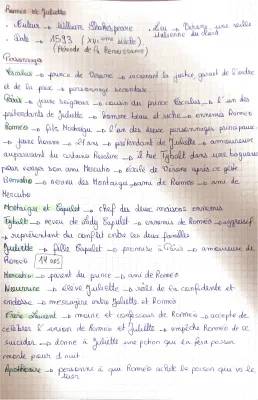 Romeo et Juliette
. Auteur → William Shakespeare . Lieu → Verone, une ville
. Date → 1593 (XVI ème siècle) italienne du nord
(Période de la Renaissance)
Personnages
Escalus → prince de Verone → incarnant la justice, garant de l'ordre
et de la paix → personnage secondaire
Pâris → jeune seigneur → cousin du prince Escalus → l'un des
prétendants de Juliette → homme beau et riche → ennemis Romeo
Romeo → fils Montaigu → l'un des deux personnages principaux
→ jeune homme → 21 ans → prétendant de Juliette → amoureux
auparavant du certaine Rosaline → il tue Tybalt dans une bagarre
pour venger son ami Mercutio → exilé de Verone après ce geste
Benvolio → neveu des Montaigu → ami de Romeo → ami de
Mercutio
Montaigu et Capulet → chef des deux maisons ennemis
Tybalt → neveu de Lady Capulet → ennemis de Romeo → aggressif
→ représentant du conflit entre les deux familles
Juliette → fille Capulet → promise à Pâris → amoureuse de
Romeo 14 ans
Mercutio → parent du prince → ami de Romeo
Nourrice → élève Juliette → rôle de la confidente et
endosse → messagère entre Juliette et Romeo
Frère Laurent → moine et confesseur de Romeo → accepte de
célébrer l'union de Romeo et Juliette → empêche Romeo de se
suicider → donne à Juliette une potion qui la fera passer
morte pour 1 nuit
Apothicaire → personne à qui Romeo achète le poison qui va le
tuer